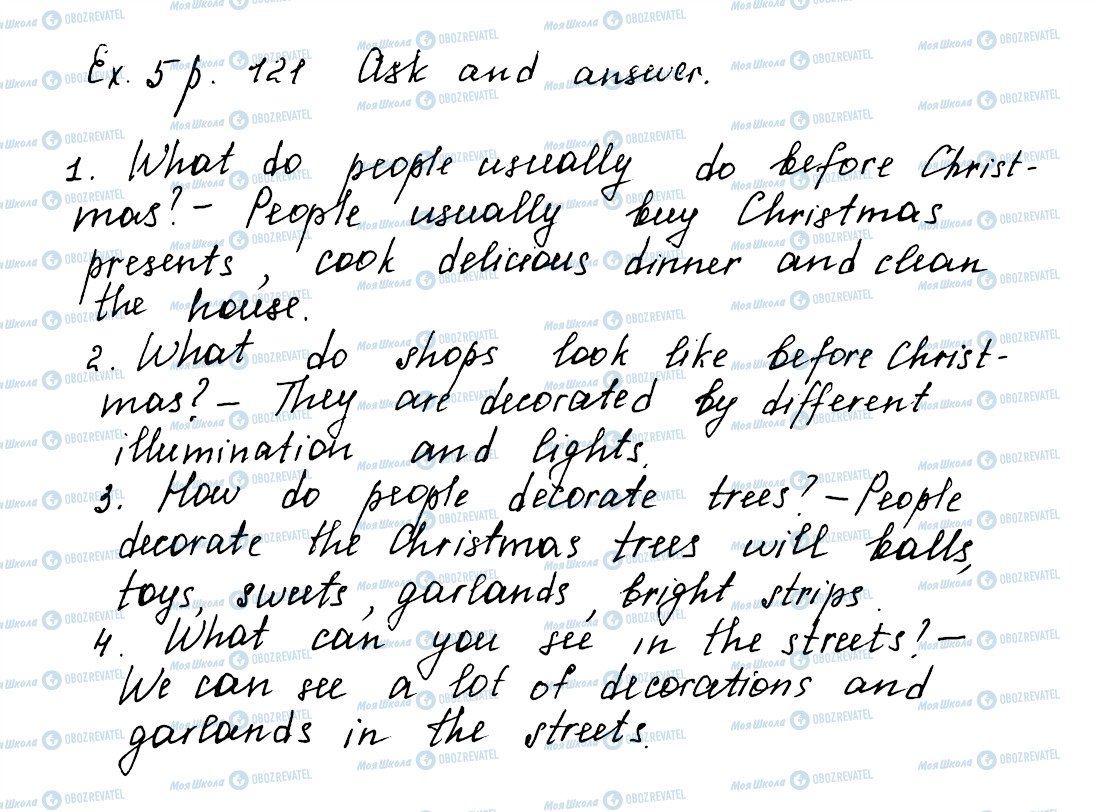 Ex. 5 p. 121 Ask and answer.
1. What do people usually do before Christ-
mas? - People usually buy Christmas
presents, cook delicious dinner and clean
the house.
2. What do shops look like before Christ-
mas? - They are decorated by different
illumination and lights.
3. How do people decorate trees? - People
decorate the Christmas trees will balls,
toys, sweets, garlands, bright strips.
4. What can you see in the streets? -
We can see a lot of decorations and
garlands in the streets.
МояШкола OBOZREVATEL